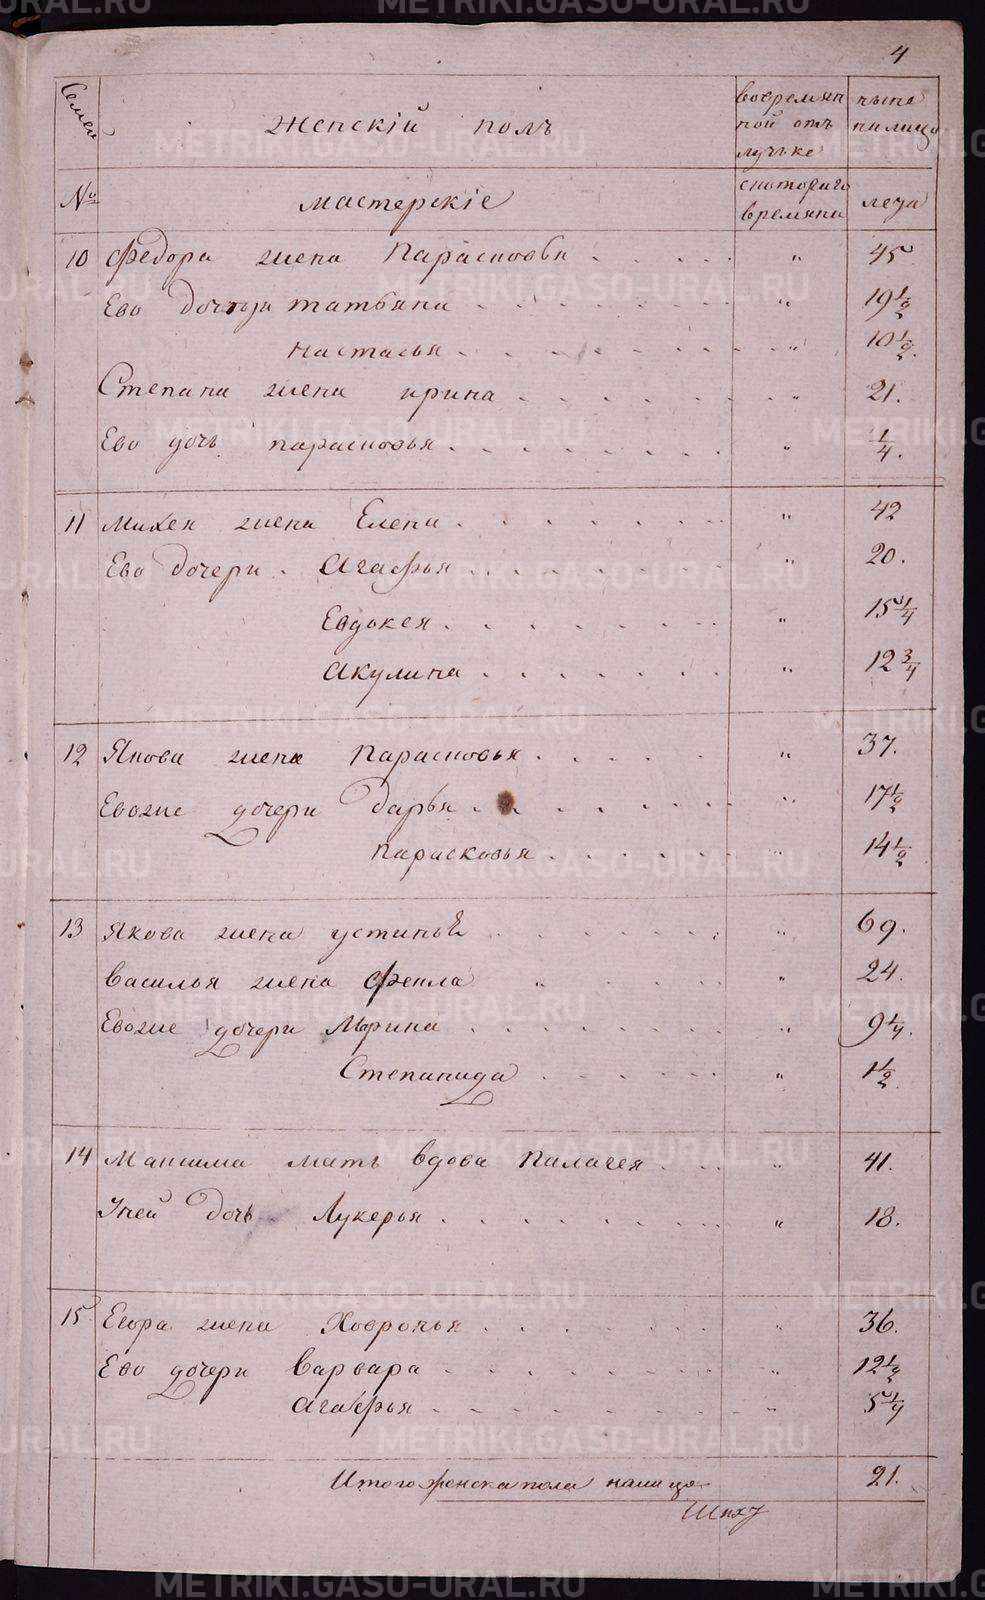 4
Семей
Женскій полъ
вовремян
ной отъ
лучьке
ныне
налицо
№
мастерскіе
скоторего
времяни
лета
10 Федора жена Парасковья 〃 45
Ево дочери татьяна 〃 19 1/2
Настасья 〃 10 1/2.
Степана жена ирина 〃 21.
Ево дочь парасковья 〃 1/4.
11 Михея жена Елена 〃 42
Ево дочери Агафья 〃 20.
Евдокея 〃 15 1/4
Акулина 〃 12 3/4
12 Якова жена Парасковья 〃 37.
Евоже дочери дарья 〃 17 1/2
Парасковья 〃 14 1/2
13 Якова жена устинья 〃 69.
василья жена Фекла 〃 24.
Евоже дочери Марина 〃 9 1/4.
Степанида 〃 1 1/2
14 Максима мать вдова Палагея 〃 41.
Уней дочь Лукерья 〃 18.
15 Егора жена Ховронья 〃 36.
Ево дочери варвара 〃 12 1/2
Агафья 〃 5 1/4
Итого женска пола налицо 21.
METRIKI.GASO-URAL.RU